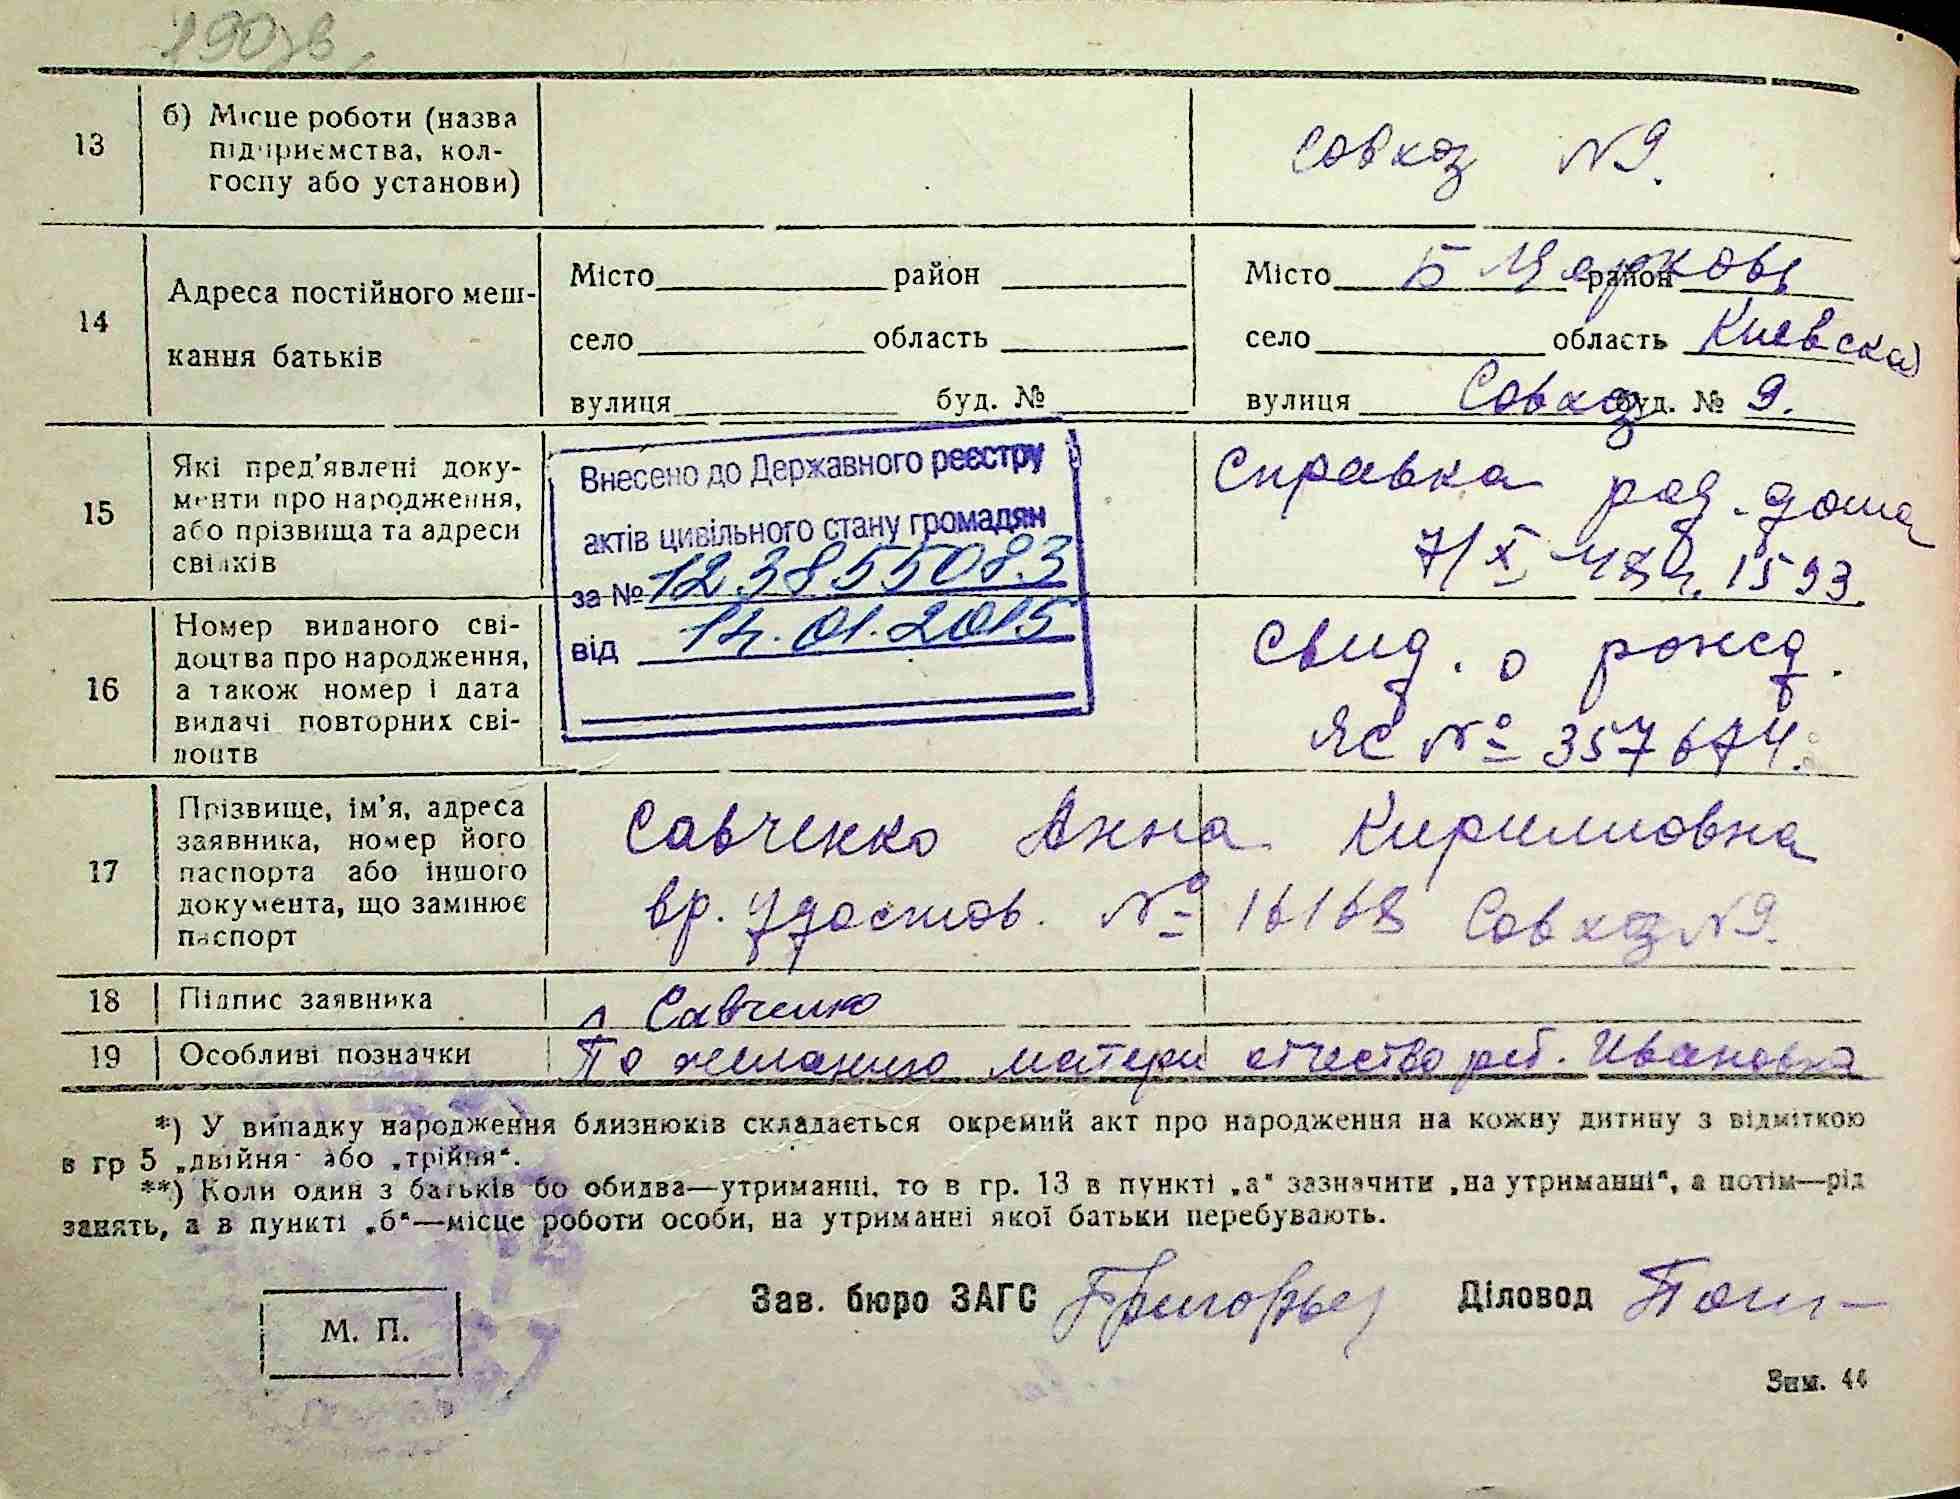 190зв.
13 б) Місце роботи (назва
підприємства, кол-
госпу або установи)
Совхоз N9.
14 Адреса постійного меш-
кання батьків
Місто район
село область
вулиця буд. №
Місто Б Церковь район
село область Киевская
вулиця Совхоз буд. № 9.
15 Які пред'явлені доку-
менти про народження,
або прізвища та адреси
свідків
Справка род. дома
7/X 1593.
Внесено до Державного реєстру
актів цивільного стану громадян
за № 123855083
від 14.01.2015
16 Номер виданого сві-
доцтва про народження,
а також номер і дата
видачі повторних сві-
доцтв
Свид. о рожд.
ЯС № 357674.
17 Прізвище, ім'я, адреса
заявника, номер його
паспорта або іншого
документа, що замінює
паспорт
Савченко Анна Кирилловна
вр. удостов. № 16168 Совхоз N9.
18 Підпис заявника
Савченко
19 Особливі позначки
По желанию матери отчество реб. Ивановна
*) У випадку народження близнюків складається окремий акт про народження на кожну дитину з відміткою
в гр 5 „двійня" або „трійня".
**) Коли один з батьків бо обидва—утриманці, то в гр. 13 в пункті „а" зазначити „на утриманні", а потім—рід
занять, а в пункті „б"—місце роботи особи, на утриманні якої батьки перебувають.
М. П.
Зав. бюро ЗАГС
Діловод
Зам. 44